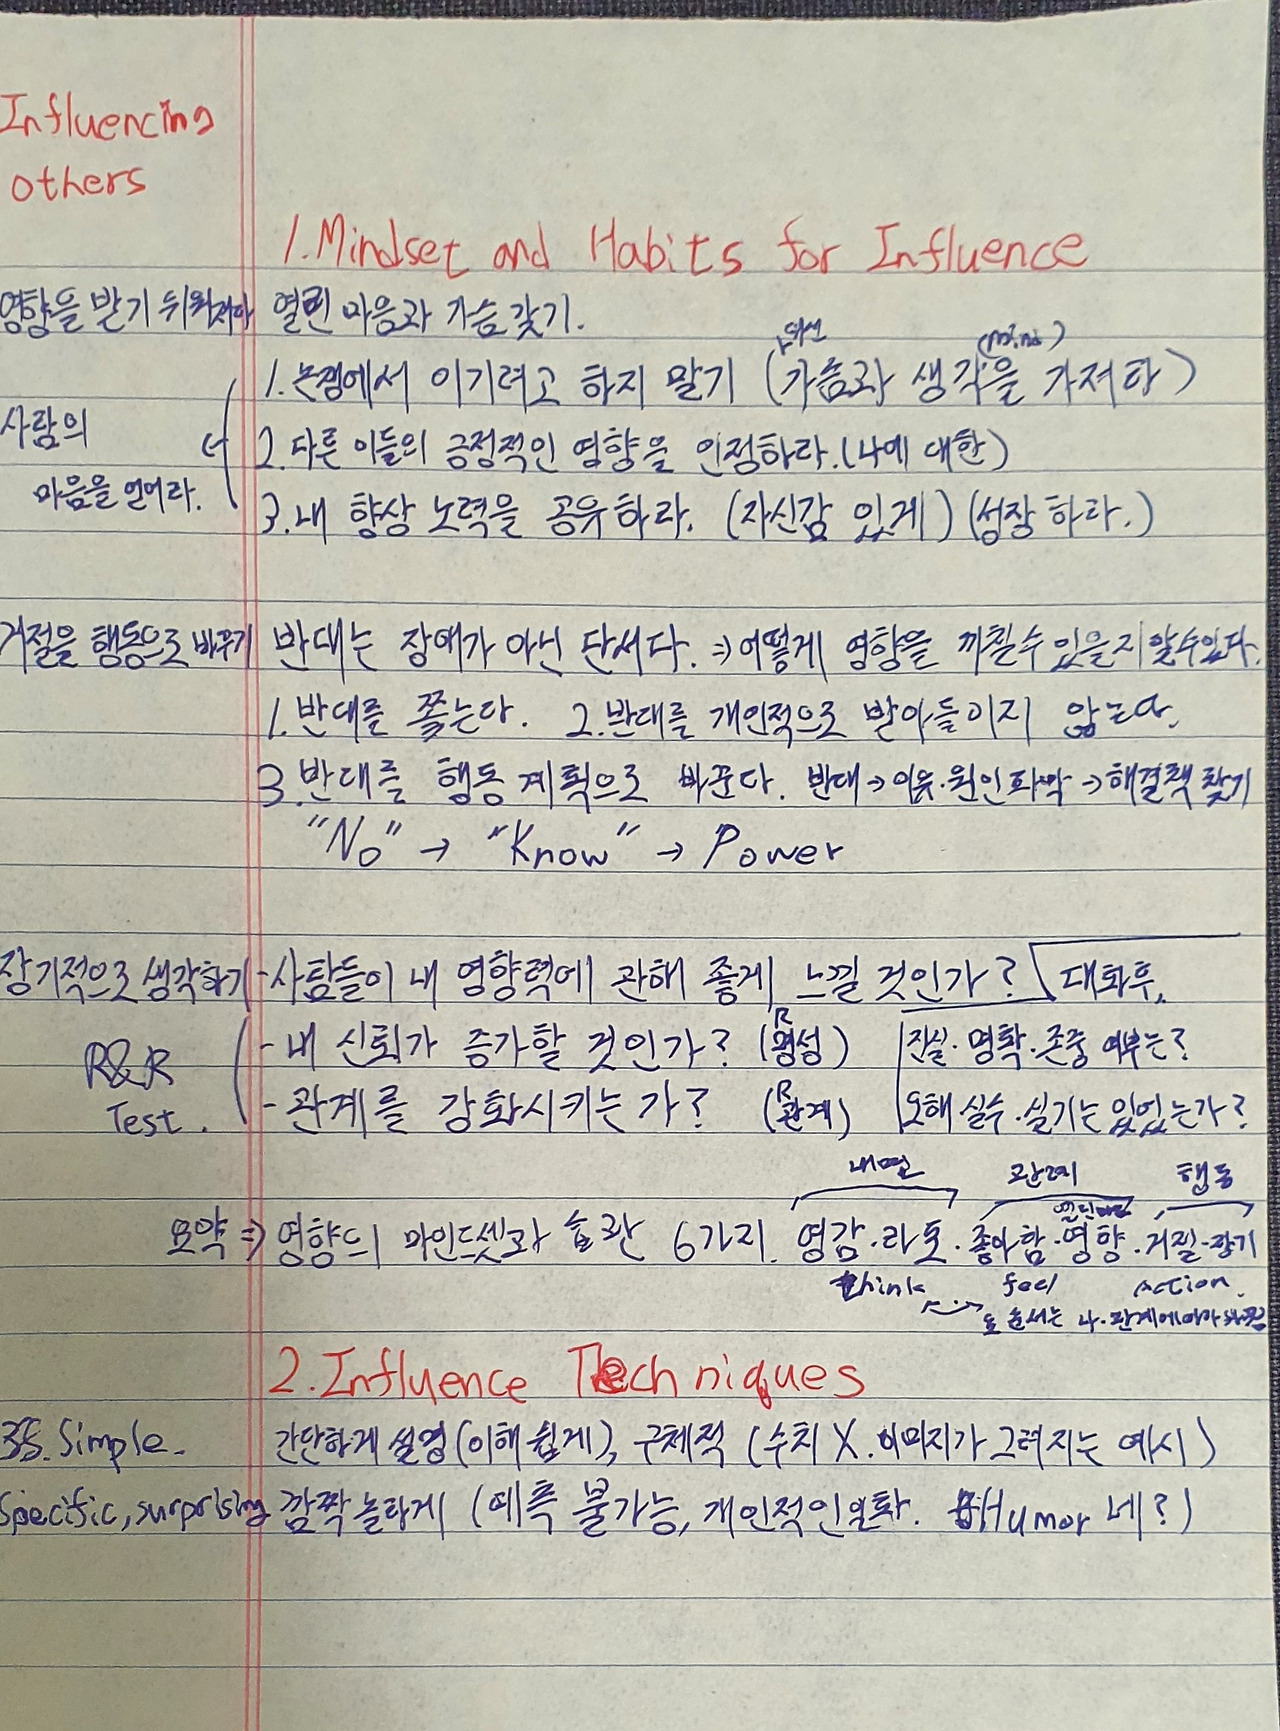 Influencing
others
1. Mindset and Habits for Influence
영향을 받기 열린 마음과 가슴 갖기.
(mind)
1. 논쟁에서 이기려고 하지 말기 (가슴과 생각을 가져라)
사람의
마음을 얻어라.
2. 다른 이들의 긍정적인 영향을 인정하라. (나에 대한)
3. 내 향상 노력을 공유하라. (자신감 있게) (성장하라.)
거절을 행동으로 바꾸기 반대는 장애가 아닌 단서다. ⇒ 어떻게 영향을 끼칠수 있을지 알수있다.
1. 반대를 쫓는다. 2. 반대를 개인적으로 받아들이지 않는다.
3. 반대를 행동 계획으로 바꾼다. 반대 → 이유·원인파악 → 해결책 찾기
"No" → "Know" → Power
장기적으로 생각하기 - 사람들이 내 영향력에 관해 좋게 느낄 것인가? 대화후,
R&R
Test.
- 내 신뢰가 증가할 것인가? (R 명성) 진실·명확·존중 여부는?
- 관계를 강화시키는가? (R 관계) 오해 실수·실기는 있었는가?
내면 관계 행동
열린마음
요약 ⇒ 영향의 마인드셋과 습관 6가지. 영감·라포·좋아함·영향·거절·장기
think feel Action.
순서는 나·관계에따라
2. Influence Techniques
3S. Simple. 간단하게 설명 (이해 쉽게), 구체적 (수치 X. 이미지가 그려지는 예시)
Specific, surprising 깜짝 놀라게 (예측 불가능, 개인적인 일화. Humor 네?)